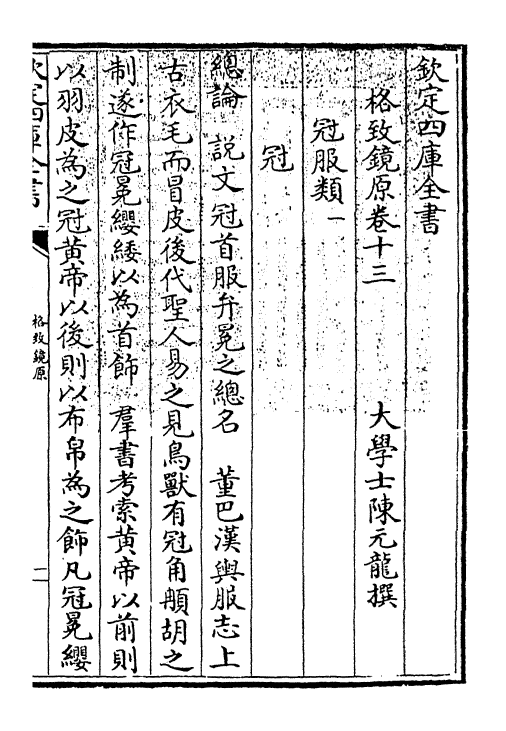 欽定四庫全書
格致鏡原卷十三　大學士陳元龍撰
冠服類一
冠
總論　說文冠首服弁冕之總名　董巴漢輿服志上
古衣毛而冒皮後代聖人易之見鳥獸有冠角䫇胡之
制遂作冠冕纓緌以為首飾　羣書考索黃帝以前則
以羽皮為之冠黃帝以後則以布帛為之飾凡冠冕纓
欽定四庫全書
格致鏡原
一